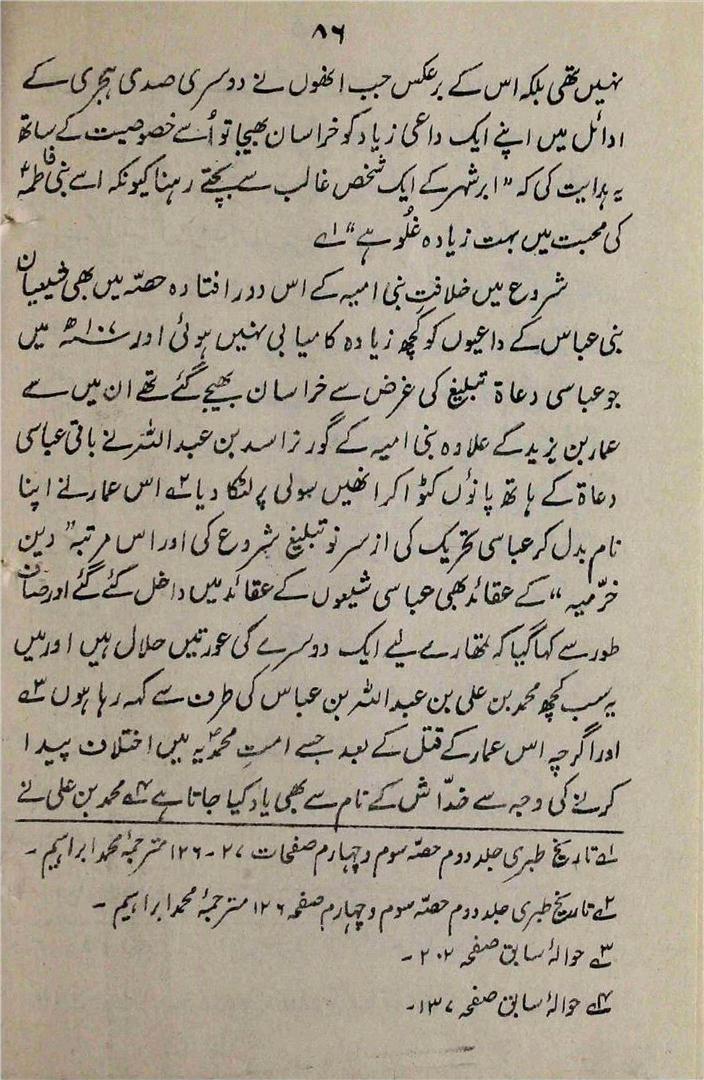 ۸۶
نہیں تھی بلکہ اس کے برعکس جب انھوں نے دوسری صدی ہجری کے
ادائل میں اپنے ایک داعی زیاد کو خراسان بھیجا تو اُسے خصوصیت کے ساتھ
یہ ہدایت کی کہ "ابرشہر کے ایک شخص غالب سے بچتے رہنا کیونکہ اسے بنی فاطمہؑ
کی محبت میں بہت زیادہ غُلو ہے" ۱ے
شروع میں خلافتِ بنی امیہ کے اس دور افتادہ حصّہ میں بھی شیعیان
بنی عباس کے داعیوں کو کچھ زیادہ کامیابی نہیں ہوئی اور ۱۰۷ھ میں
جو عباسی دعاۃ تبلیغ کی غرض سے خراسان بھیجے گئے تھے ان میں سے
عمار بن یزید کے علاوہ بنی امیہ کے گورنر اسد بن عبد اللہ نے باقی عباسی
دعاۃ کے ہاتھ پانوں کٹوا کر انھیں سولی پر لٹکا دیا ۲ے اس عمار نے اپنا
نام بدل کر عباسی تحریک کی از سر نو تبلیغ شروع کی اور اس مرتبہ "دین
خرّمیہ" کے عقائد بھی عباسی شیعوں کے عقائد میں داخل کئے گئے اور صاف
طور سے کہا گیا کہ تمھارے لئے ایک دوسرے کی عورتیں حلال ہیں اور میں
یہ سب کچھ محمد بن علی بن عبد اللہ بن عباس کی طرف سے کہہ رہا ہوں ۳ے
اور اگرچہ اس عمار کے قتل کے بعد جسے امتِ محمدؐیہ میں اختلاف پیدا
کرنے کی وجہ سے خدّاش کے نام سے بھی یاد کیا جاتا ہے ۴ے محمد بن علی نے
۱ے تاریخ طبری جلد دوم حصّہ سوم و چہارم صفحات ۲۷-۱۲۶ مترجمۂ محمد ابراہیم -
۲ے تاریخ طبری جلد دوم حصّہ سوم و چہارم صفحہ ۱۲۶ مترجمۂ محمد ابراہیم -
۳ے حوالۂ سابق صفحہ ۲۰۲ -
۴ے حوالۂ سابق صفحہ ۱۳۷ -